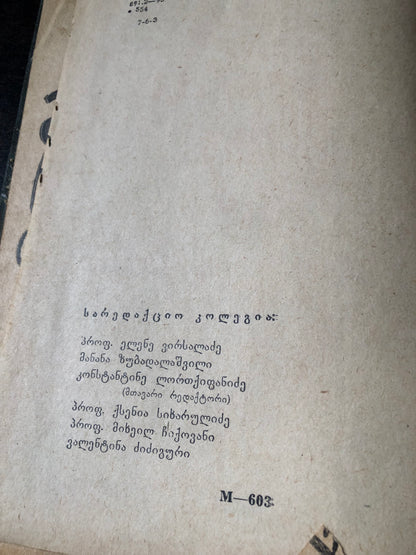 * 554
7-6-3
სარედაქციო კოლეგია:
პროფ. ელენე ვირსალაძე
მანანა ზუბადალაშვილი
კონსტანტინე ლორთქიფანიძე
(მთავარი რედაქტორი)
პროფ. ქსენია სიხარულიძე
პროფ. მიხეილ ჩიქოვანი
ვალენტინა ძიძიგური
М—603